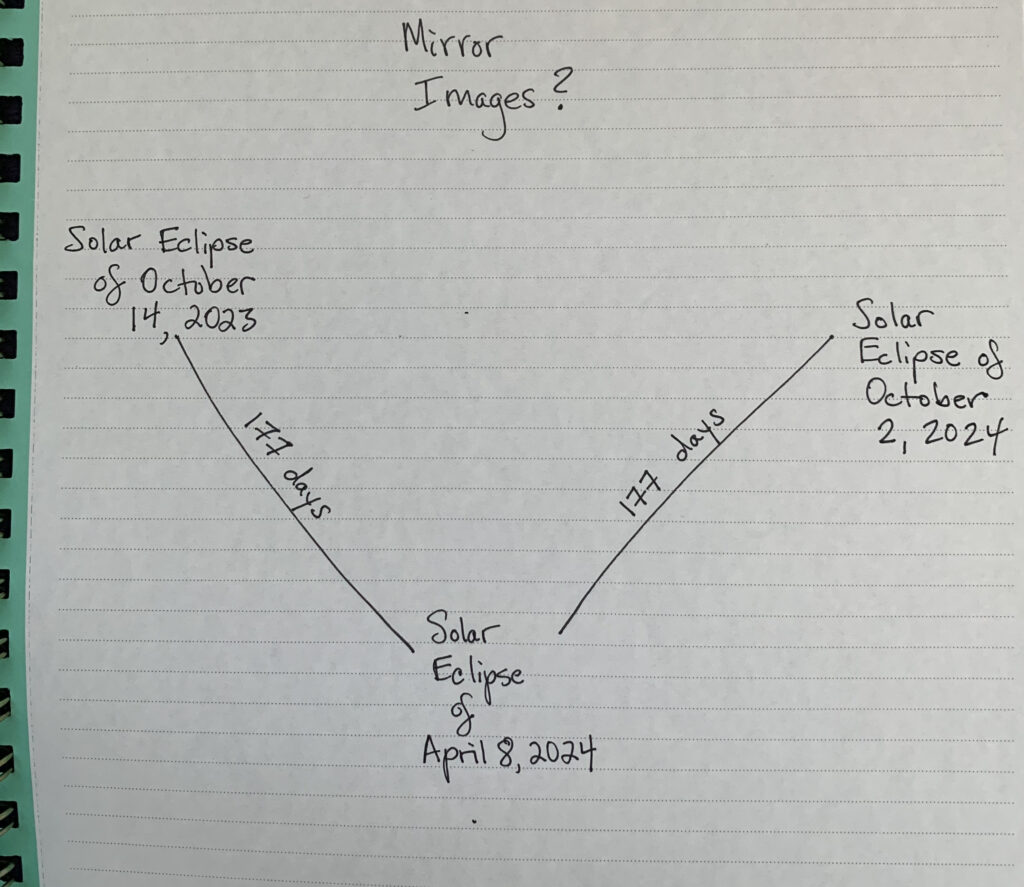 Mirror
Images?
Solar Eclipse
of October
14, 2023
Solar
Eclipse of
October
2, 2024
177 days
177 days
Solar
Eclipse
of
April 8, 2024